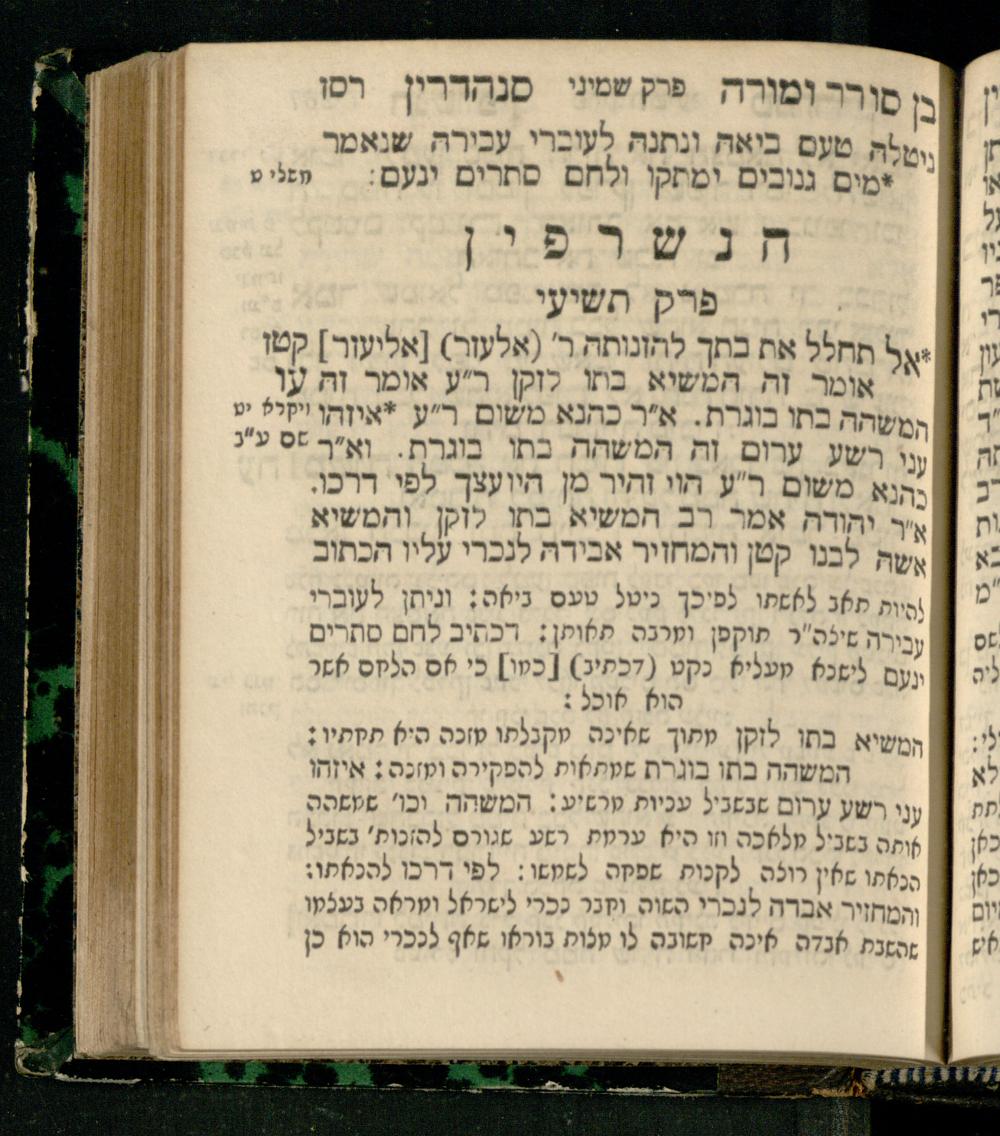 בן סורר ומורה פרק שמיני סנהדרין רסז
ניטלה טעם ביאה ונתנה לעוברי עבירה שנאמר
*מים גנובים ימתקו ולחם סתרים ינעם: משלי ט
הנשרפין
פרק תשיעי
*אל תחלל את בתך להזנותה ר׳ (אלעזר) [אליעזר] קטז
אומר זה המשיא בתו לזקן ר״ע אומר זה עו
המשהה בתו בוגרת. א״ר כהנא משום ר״ע *איזהו ויקרא יט
עני רשע ערום זה המשהה בתו בוגרת. וא״ר שם ע״ב
כהנא משום ר״ע הוי זהיר מן היועצך לפי דרכו.
א״ר יהודה אמר רב המשיא בתו לזקן והמשיא
אשה לבנו קטן והמחזיר אבידה לנכרי עליו הכתוב
להיות תאב לאשתו לפיכך ניטל טעם ביאה: וניתן לעוברי
עבירה שילה״ר תוקפן ומרבה תאותן: דכתיב לחם סתרים
ינעם לישנא מעליא נקט (דכתיב) [כמו] כי אם הלחם אשר
הוא אוכל:
המשיא בתו לזקן מתוך שאינה מקבלתו מזנה היא תחתיו:
המשהה בתו בוגרת שמתאות להפקירה ומזנה: איזהו
עני רשע ערום שבשביל עניות מרשיע: המשהה וכו׳ שמשהה
אותה בשביל מלאכה וזו היא ערמת רשע שגורם להזנות׳ בשביל
הנאתו שאין רוצה לקנות שפחה לשמשו: לפי דרכו להנאתו:
והמחזיר אבדה לנכרי השוה וחבר נכרי לישראל ומראה בעצמו
שהשבת אבדה אינה חשובה לו מצות בוראו שאף לנכרי הוא כן